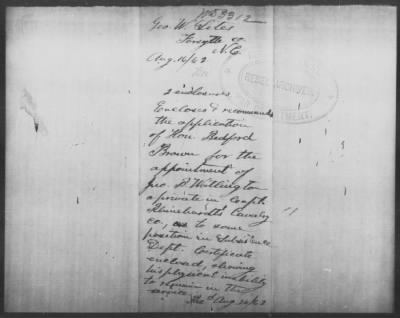 Geo. W. Siler
Forsythe Co
N.C.
Aug. 16/62
2 enclosures
Encloses & recommends
the application
of Hon. Bedford
Brown for the
appointment of
Geo. D. Wittington
a private in Capt.
Cavalry
Co., to some
position in Subsistence
Dept. Certificate
enclosed, showing
his physical inability
to remain in
service
Recd Aug 20/62
REBEL ARCHIVES